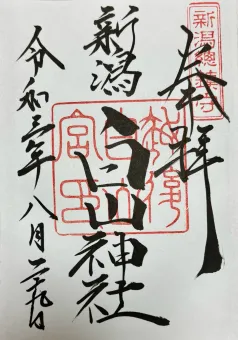 奉拝
新潟總鎮守
新潟
白山神社
令和三年八月二十九日